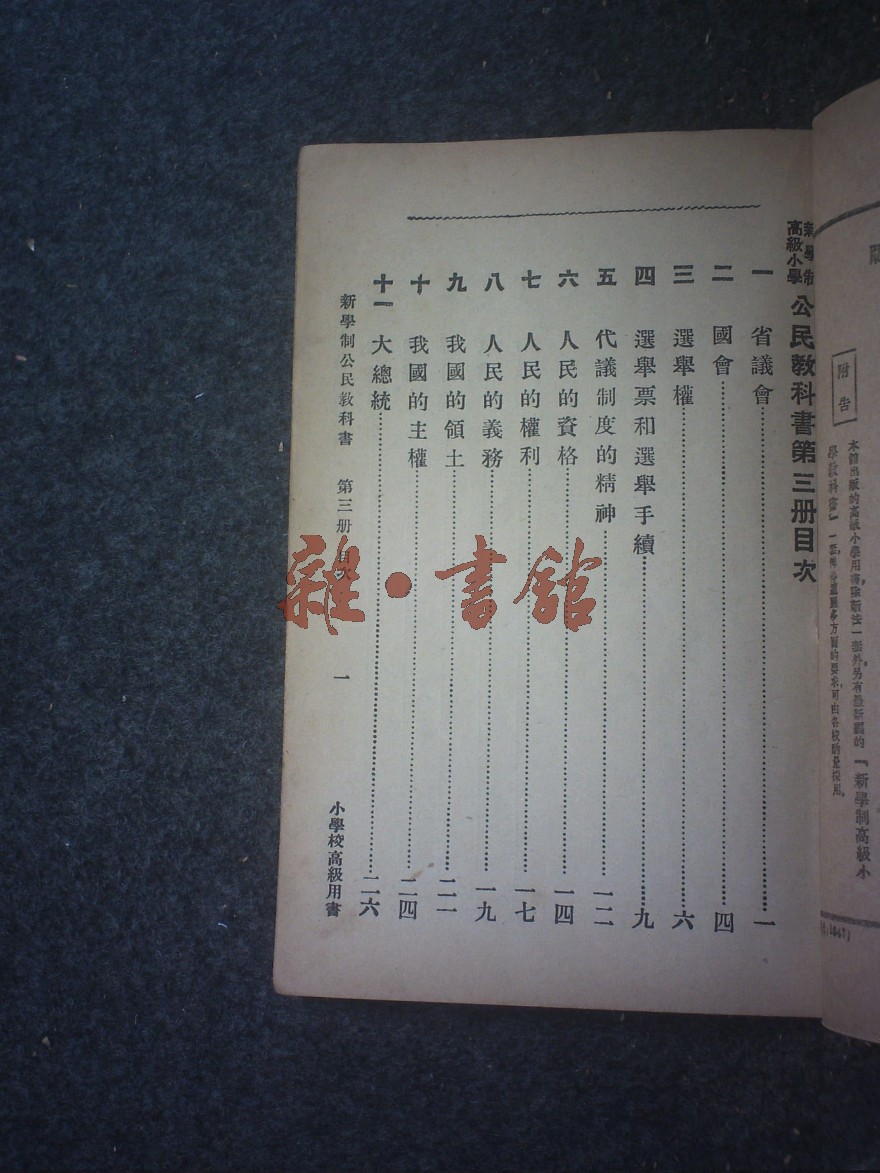 附告
本館出版的高級小學用書,除新法一套外,另有最新編的「新學制高級小
學教科書」一套,
可由各校酌量採用。
新學制
高級小學
公民教科書第三册目次
一 省議會 一
二 國會 四
三 選舉權 六
四 選舉票和選舉手續 九
五 代議制度的精神 一二
六 人民的資格 一四
七 人民的權利 一七
八 人民的義務 一九
九 我國的領土 二一
十 我國的主權 二四
十一 大總統 二六
新學制公民教科書 第三册 目次 一 小學校高級用書
雜·書館